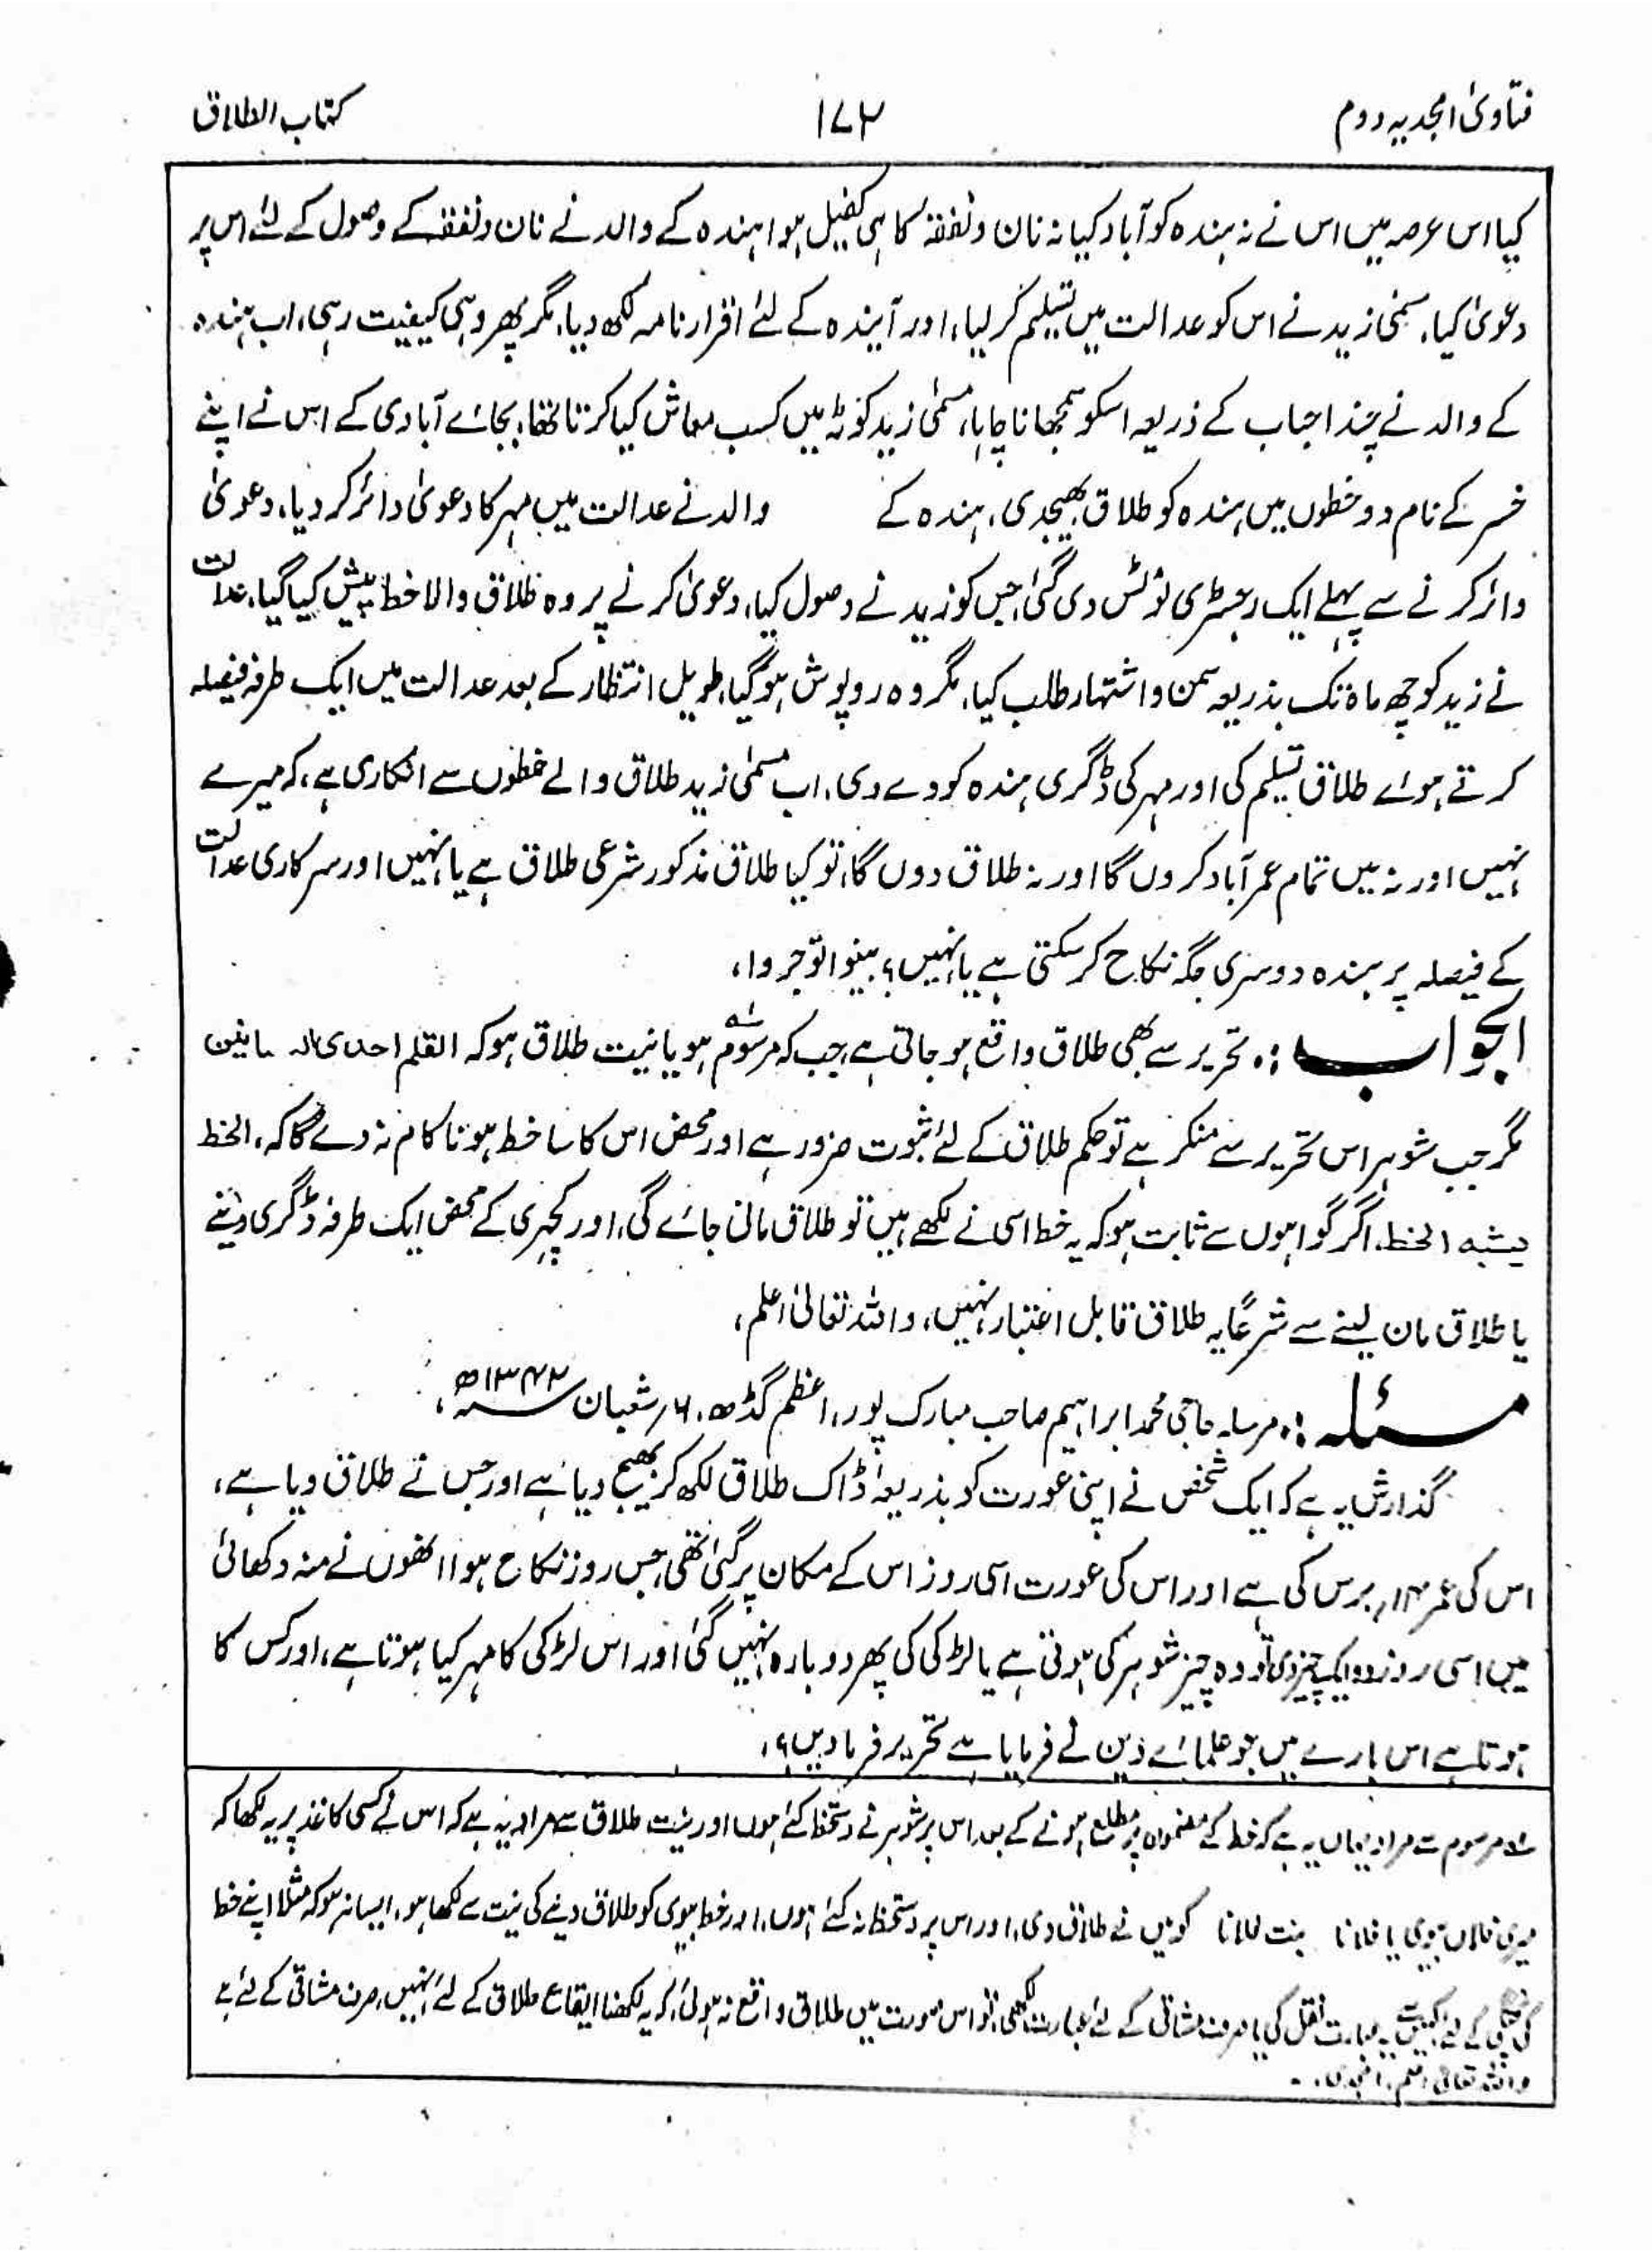 فتاویٰ امجدیہ دوم
۱۷۲
کتاب الطلاق
کیا اس عرصہ میں اس نے نہ ہندہ کو آباد کیا نہ نان و نفقہ کا ہی کفیل ہوا ہندہ کے والد نے نان و نفقہ کے وصول کے لئے اس پر
دعویٰ کیا، مسمّٰی زید نے اس کو عدالت میں تسلیم کر لیا، اور آیندہ کے لئے اقرار نامہ لکھ دیا، مگر پھر وہی کیفیت رہی، اب ہندہ
کے والد نے چند احباب کے ذریعہ اسکو سمجھانا چاہا، مسمّٰی زید کوٹہ میں کسب معاش کیا کرتا تھا، بجائے آبادی کے اس نے اپنے
خسر کے نام دو خطوں میں ہندہ کو طلاق بھیجدی، ہندہ کے والد نے عدالت میں مہر کا دعویٰ دائر کر دیا، دعویٰ
دائر کرنے سے پہلے ایک رجسٹری نوٹس دی گئی، جس کو زید نے وصول کیا، دعویٰ کرنے پر وہ طلاق والا خط پیش کیا گیا، عدالت
نے زید کو چھ ماہ تک بذریعہ سمن و اشتہار طلب کیا، مگر وہ روپوش ہو گیا، طویل انتظار کے بعد عدالت میں ایک طرفہ فیصلہ
کرتے ہوئے طلاق تسلیم کی اور مہر کی ڈگری ہندہ کو دے دی، اب مسمّٰی زید طلاق والے خطوں سے انکاری ہے، کہ میرے
نہیں اور نہ میں تمام عمر آباد کروں گا اور نہ طلاق دوں گا، تو کیا طلاق مذکور شرعی طلاق ہے یا نہیں اور سرکاری عدالت
کے فیصلہ پر ہندہ دوسری جگہ نکاح کر سکتی ہے یا نہیں؟ بینوا توجروا،
الجواب :۔ تحریر سے بھی طلاق واقع ہو جاتی ہے جب کہ مرسوم لہ ہو یا نیت طلاق ہو کہ القلم احدی اللسانین
مگر جب شوہر اس تحریر سے منکر ہے تو حکم طلاق کے لئے ثبوت ضرور ہے اور محض اس کا سا خط ہونا کام نہ دے گا کہ، الخط
یشبہ الخط، اگر گواہوں سے ثابت ہو کہ یہ خط اسی نے لکھے ہیں تو طلاق مانی جائے گی، اور کچہری کے محض ایک طرفہ ڈگری دینے
یا طلاق مان لینے سے شرعاً یہ طلاق قابل اعتبار نہیں، واللہ تعالیٰ اعلم،
مسئلہ :۔ مرسلہ حاجی محمد ابراہیم صاحب مبارک پور، اعظم گڈھ، ۶؍ شعبان ۱۳۴۲ھ،
گذارش یہ ہے کہ ایک شخص نے اپنی عورت کو بذریعہ ڈاک طلاق لکھ کر بھیج دیا ہے اور جس نے طلاق دیا ہے،
اس کی عمر ۱۴؍ برس کی ہے اور اس کی عورت اسی روز اس کے مکان پر گئی تھی، جس روز نکاح ہوا انھوں نے منہ دکھائی
میں اسی روز دو ایک چیز دی تو وہ چیز شوہر کی ہوتی ہے یا لڑکی کی پھر دوبارہ نہیں گئی اور اس لڑکی کا مہر کیا ہوتا ہے، اور کس کا
ہوتا ہے اس بارے میں جو علمائے دین نے فرمایا ہے تحریر فرما دیں؟،
لہ مرسوم سے مراد یہاں یہ ہے کہ خط کے مضمون پر مطلع ہونے کے بعد اس پر شوہر نے دستخط کئے ہوں اور نیت طلاق سے مراد یہ ہے کہ اس نے کسی کاغذ پر یہ لکھا کہ
میری فلاں بیوی یا فلانا بنت فلانا کو میں نے طلاق دی، اور اس پر دستخط نہ کئے ہوں، اور خط بیوی کو طلاق دینے کی نیت سے لکھا ہو، ایسا نہ ہو کہ مثلاً اپنے خط
کی کے لئے کہیں سے یہ عبارت نقل کی یا صرف مشاقی کے لئے عبارت لکھی، تو اس صورت میں طلاق واقع نہ ہوئی، کہ یہ لکھنا ایقاع طلاق کے لئے نہیں، صرف مشاقی کے لئے ہے
واللہ تعالیٰ اعلم، امجدی،